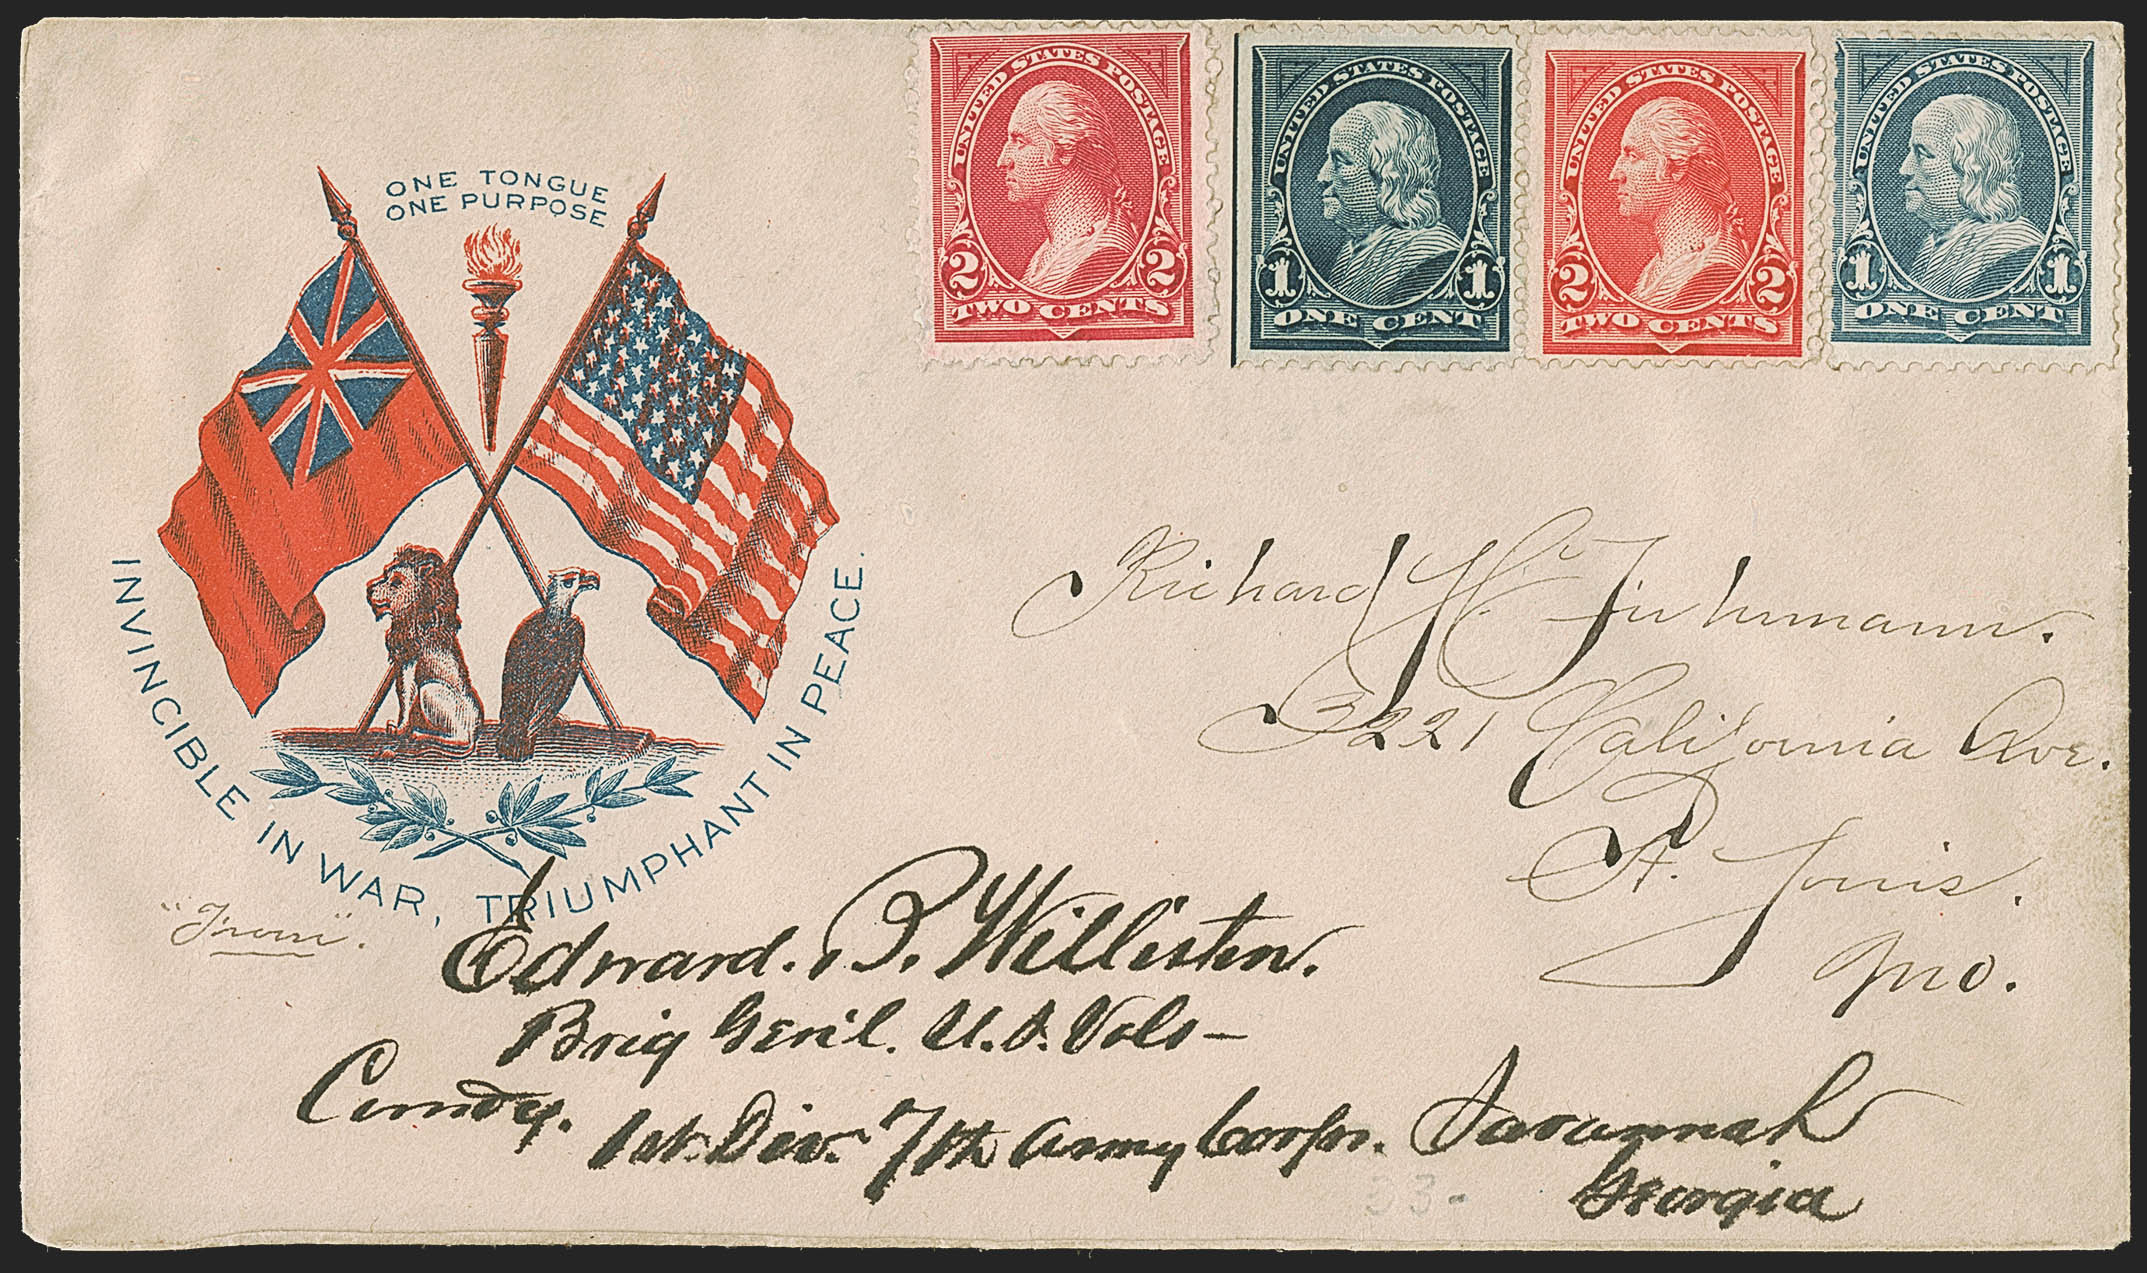 ONE TONGUE
ONE PURPOSE
INVINCIBLE IN WAR, TRIUMPHANT IN PEACE.
UNITED STATES POSTAGE
2 2
TWO CENTS
UNITED STATES POSTAGE
1 1
ONE CENT
UNITED STATES POSTAGE
2 2
TWO CENTS
UNITED STATES POSTAGE
1 1
ONE CENT
Richard H.
3221 California Ave.
St. Louis.
Mo.
"From".
Edward. B. Williston.
Brig Gen'l. U.S. Vols—
Comdg.
1st. Div. 7th Army Corps. Savannah
Georgia
33-